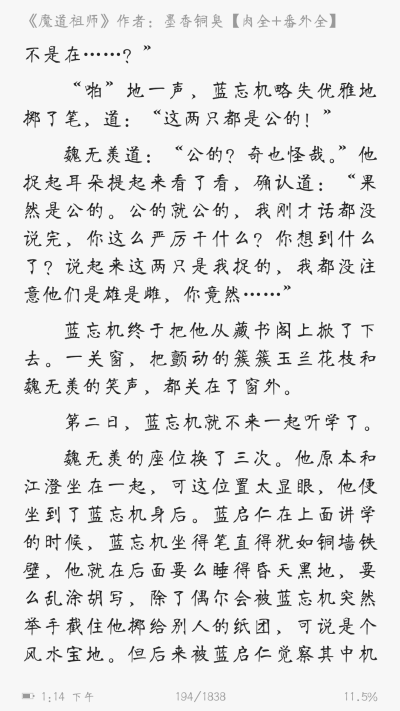 《魔道祖师》作者：墨香铜臭【肉全+番外全】
不是在……？”
“啪”地一声，蓝忘机略失优雅地
掷了笔，道：“这两只都是公的！”
魏无羡道：“公的？奇也怪哉。”他
捉起耳朵提起来看了看，确认道：“果
然是公的。公的就公的，我刚才话都没
说完，你这么严厉干什么？你想到什么
了？说起来这两只是我捉的，我都没注
意他们是雄是雌，你竟然……”
蓝忘机终于把他从藏书阁上掀了下
去。一关窗，把颤动的簇簇玉兰花枝和
魏无羡的笑声，都关在了窗外。
第二日，蓝忘机就不来一起听学了。
魏无羡的座位换了三次。他原本和
江澄坐在一起，可这位置太显眼，他便
坐到了蓝忘机身后。蓝启仁在上面讲学
的时候，蓝忘机坐得笔直得犹如铜墙铁
壁，他就在后面要么睡得昏天黑地，要
么乱涂胡写，除了偶尔会被蓝忘机突然
举手截住他掷给别人的纸团，可说是个
风水宝地。但后来被蓝启仁觉察其中机
1:14 下午 194/1838 11.5%